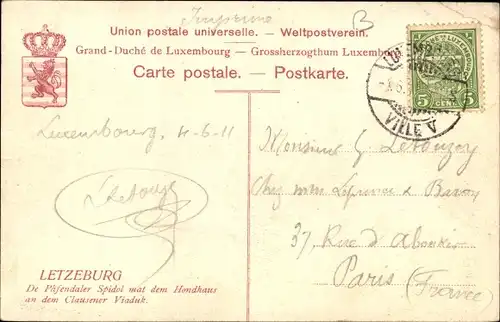 Imprimé
B
Union postale universelle. — Weltpostverein.
Grand-Duché de Luxembourg — Grossherzogthum Luxemburg
Carte postale. — Postkarte.
5 5
CENT.
VILLE V
Luxembourg, 4-6-11
Monsieur G Letouzey
Chez mm Leprince & Baron
37, Rue d'Aboukir
Paris (France)
LETZEBURG
De Pàfendaler Spidol mat dem Hondhaus
an dem Clausener Viaduk.